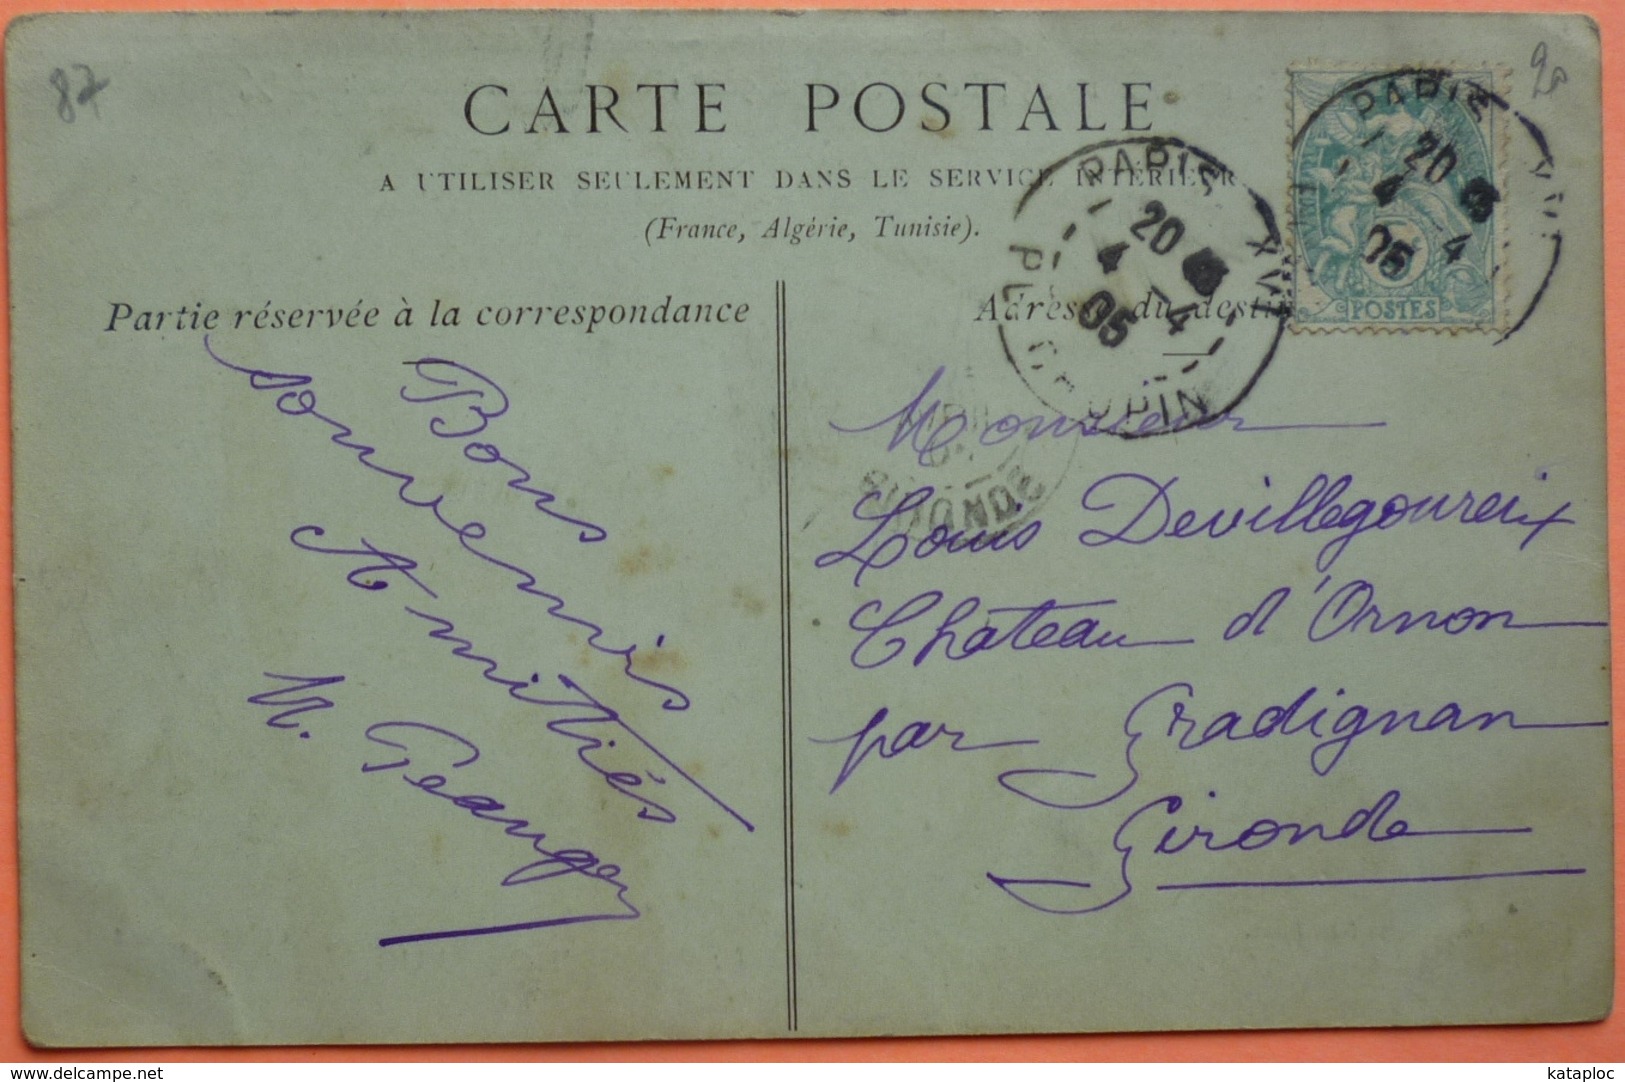 87
20
CARTE POSTALE
A UTILISER SEULEMENT DANS LE SERVICE INTÉRIEUR
(France, Algérie, Tunisie).
Partie réservée à la correspondance
Adresse du destin
Bons
souvenirs
Amitiés
M.
PARIS XVII
20
4
-4
05
PARIS XVII
20
4
-4
05
POSTES
GIRONDE
Monsieur
Louis Devillegoureix
Chateau d'Ornon
par Gradignan
Gironde
www.delcampe.net
kataploc